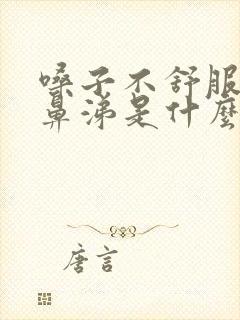 嗓子不舒服
鼻涕是什麼
唐言